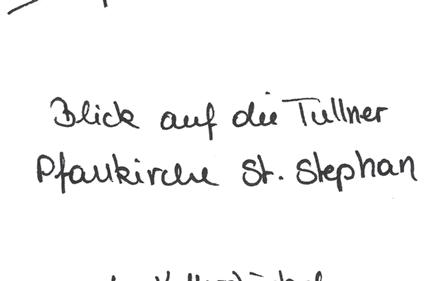 Blick auf die Tullner
Pfarrkirche St. Stephan